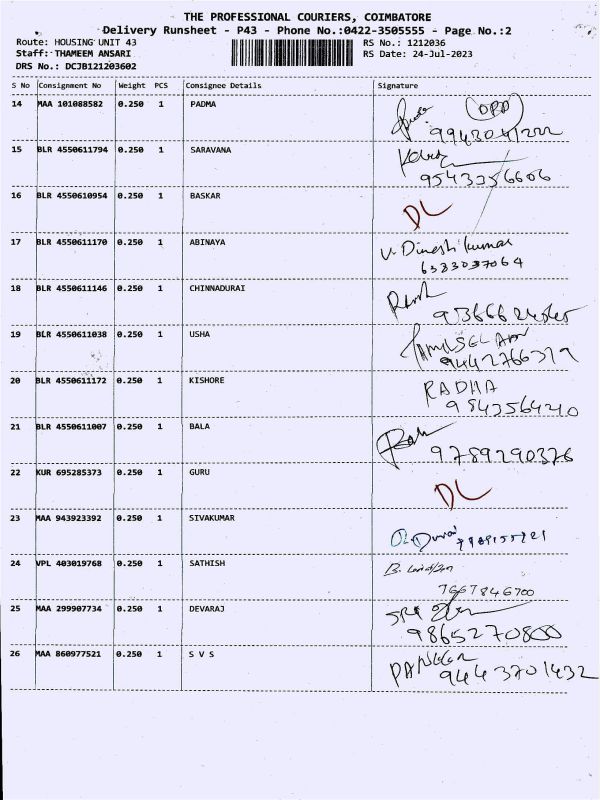 THE PROFESSIONAL COURIERS, COIMBATORE
Delivery Runsheet - P43 - Phone No.:0422-3505555 - Page No.:2
Route: HOUSING UNIT 43 RS No.: 1212036
Staff: THAMEEM ANSARI RS Date: 24-Jul-2023
DRS No.: DCJB121203602
S No Consignment No Weight PCS Consignee Details Signature
14 MAA 101088582 0.250 1 PADMA
(OPP)
15 BLR 4550611794 0.250 1 SARAVANA
9543356606
16 BLR 4550610954 0.250 1 BASKAR DL
17 BLR 4550611170 0.250 1 ABINAYA V. Dinesh kumar
6383037064
18 BLR 4550611146 0.250 1 CHINNADURAI
19 BLR 4550611038 0.250 1 USHA TAMILSELVAN
9442766379
20 BLR 4550611172 0.250 1 KISHORE RADHA
9843564210
21 BLR 4550611007 0.250 1 BALA
9789290376
22 KUR 695285373 0.250 1 GURU DL
23 MAA 943923392 0.250 1 SIVAKUMAR
24 VPL 403019768 0.250 1 SATHISH B.
7667846700
25 MAA 299907734 0.250 1 DEVARAJ SRI
9865270800
26 MAA 860977521 0.250 1 S V S PANEER
9443701432